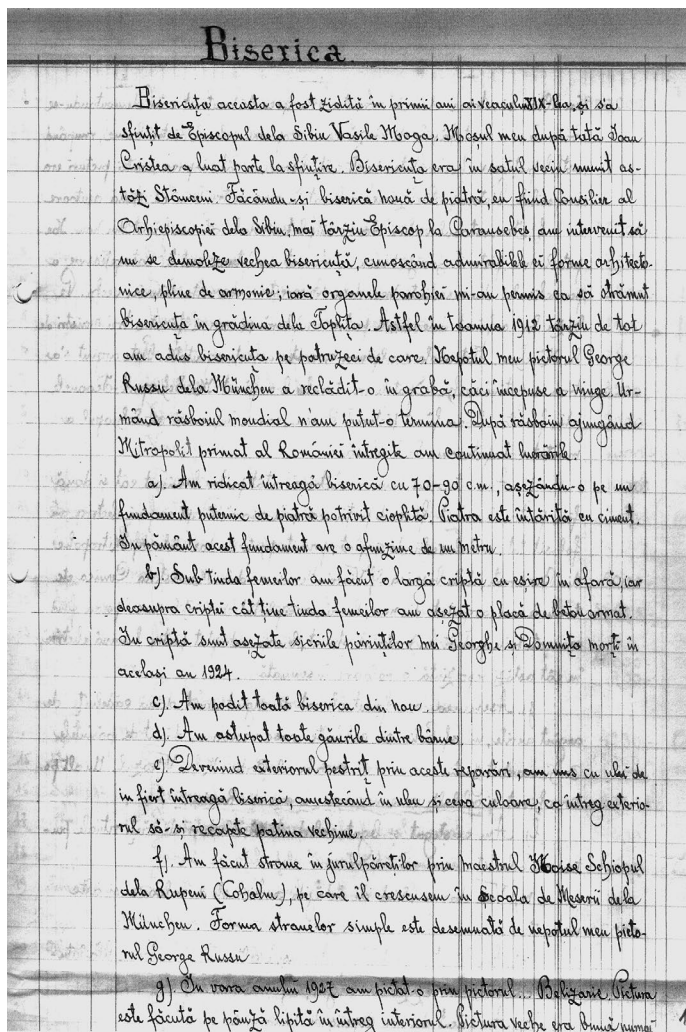 Biserica
Bisericuța aceasta a fost zidită în primii ani ai veacului XIX-lea, și s'a
sfințit de Episcopul dela Sibiu Vasile Moga. Moșul meu după tată Ioan
Cristea a luat parte la sfințire. Bisericuța era în satul vecin numit as-
tăzi Stânceni. Făcându-și biserică nouă de piatră, eu fiind Consilier al
Arhiepiscopiei dela Sibiu, mai târziu Episcop la Caransebeș, am intervenit să
nu se demoleze vechea bisericuță, cunoscând admirabilele ei forme arhitecto-
nice, pline de armonie; iară organele parohiei mi-au permis ca să strămut
bisericuța în grădina dela Toplița. Astfel în toamna 1912 târziu de tot
am adus bisericuța pe patruzeci de care. Nepotul meu pictorul George
Russu dela München a reclădit-o în grabă, căci începuse a ninge. Ur-
mând răsboiul mondial n'am putut-o termina. După răsboiu ajungând
Mitropolit primat al României întregite am continuat lucrările.
a). Am ridicat întreagă biserică cu 70-90 c.m., așezându-o pe un
fundament puternic de piatră potrivit cioplită. Piatra este întărită cu ciment.
În pământ acest fundament are o afunzime de un metru.
b). Sub tinda femeilor am făcut o largă criptă cu eșire în afară, iar
deasupra criptei cât ține tinda femeilor am așezat o placă de beton armat.
În criptă sunt așezate sicriile părinților mei Georghe și Domnița morți în
același an 1924.
c). Am podit toată biserica din nou.
d). Am astupat toate găurile dintre bârne.
e). Devenind exteriorul pestriț prin aceste reparări, am uns cu uleu de
in fiert întreagă biserică, amestecând în uleu și ceva culoare, ca întreg exterio-
rul să-și recapete patina vechime.
f). Am făcut strane în jurul păreților prin maestrul Moise Schiopul
dela Rupeni (Cohalm), pe care îl crescusem în Școala de Meserii dela
München. Forma stranelor simple este desemnată de nepotul meu picto-
rul George Russu
g) În vara anului 1927 am pictat-o prin pictorul... Belizarie Pictura
este făcută pe pânză lipită în întreg interiorul. Pictura veche era bună numai